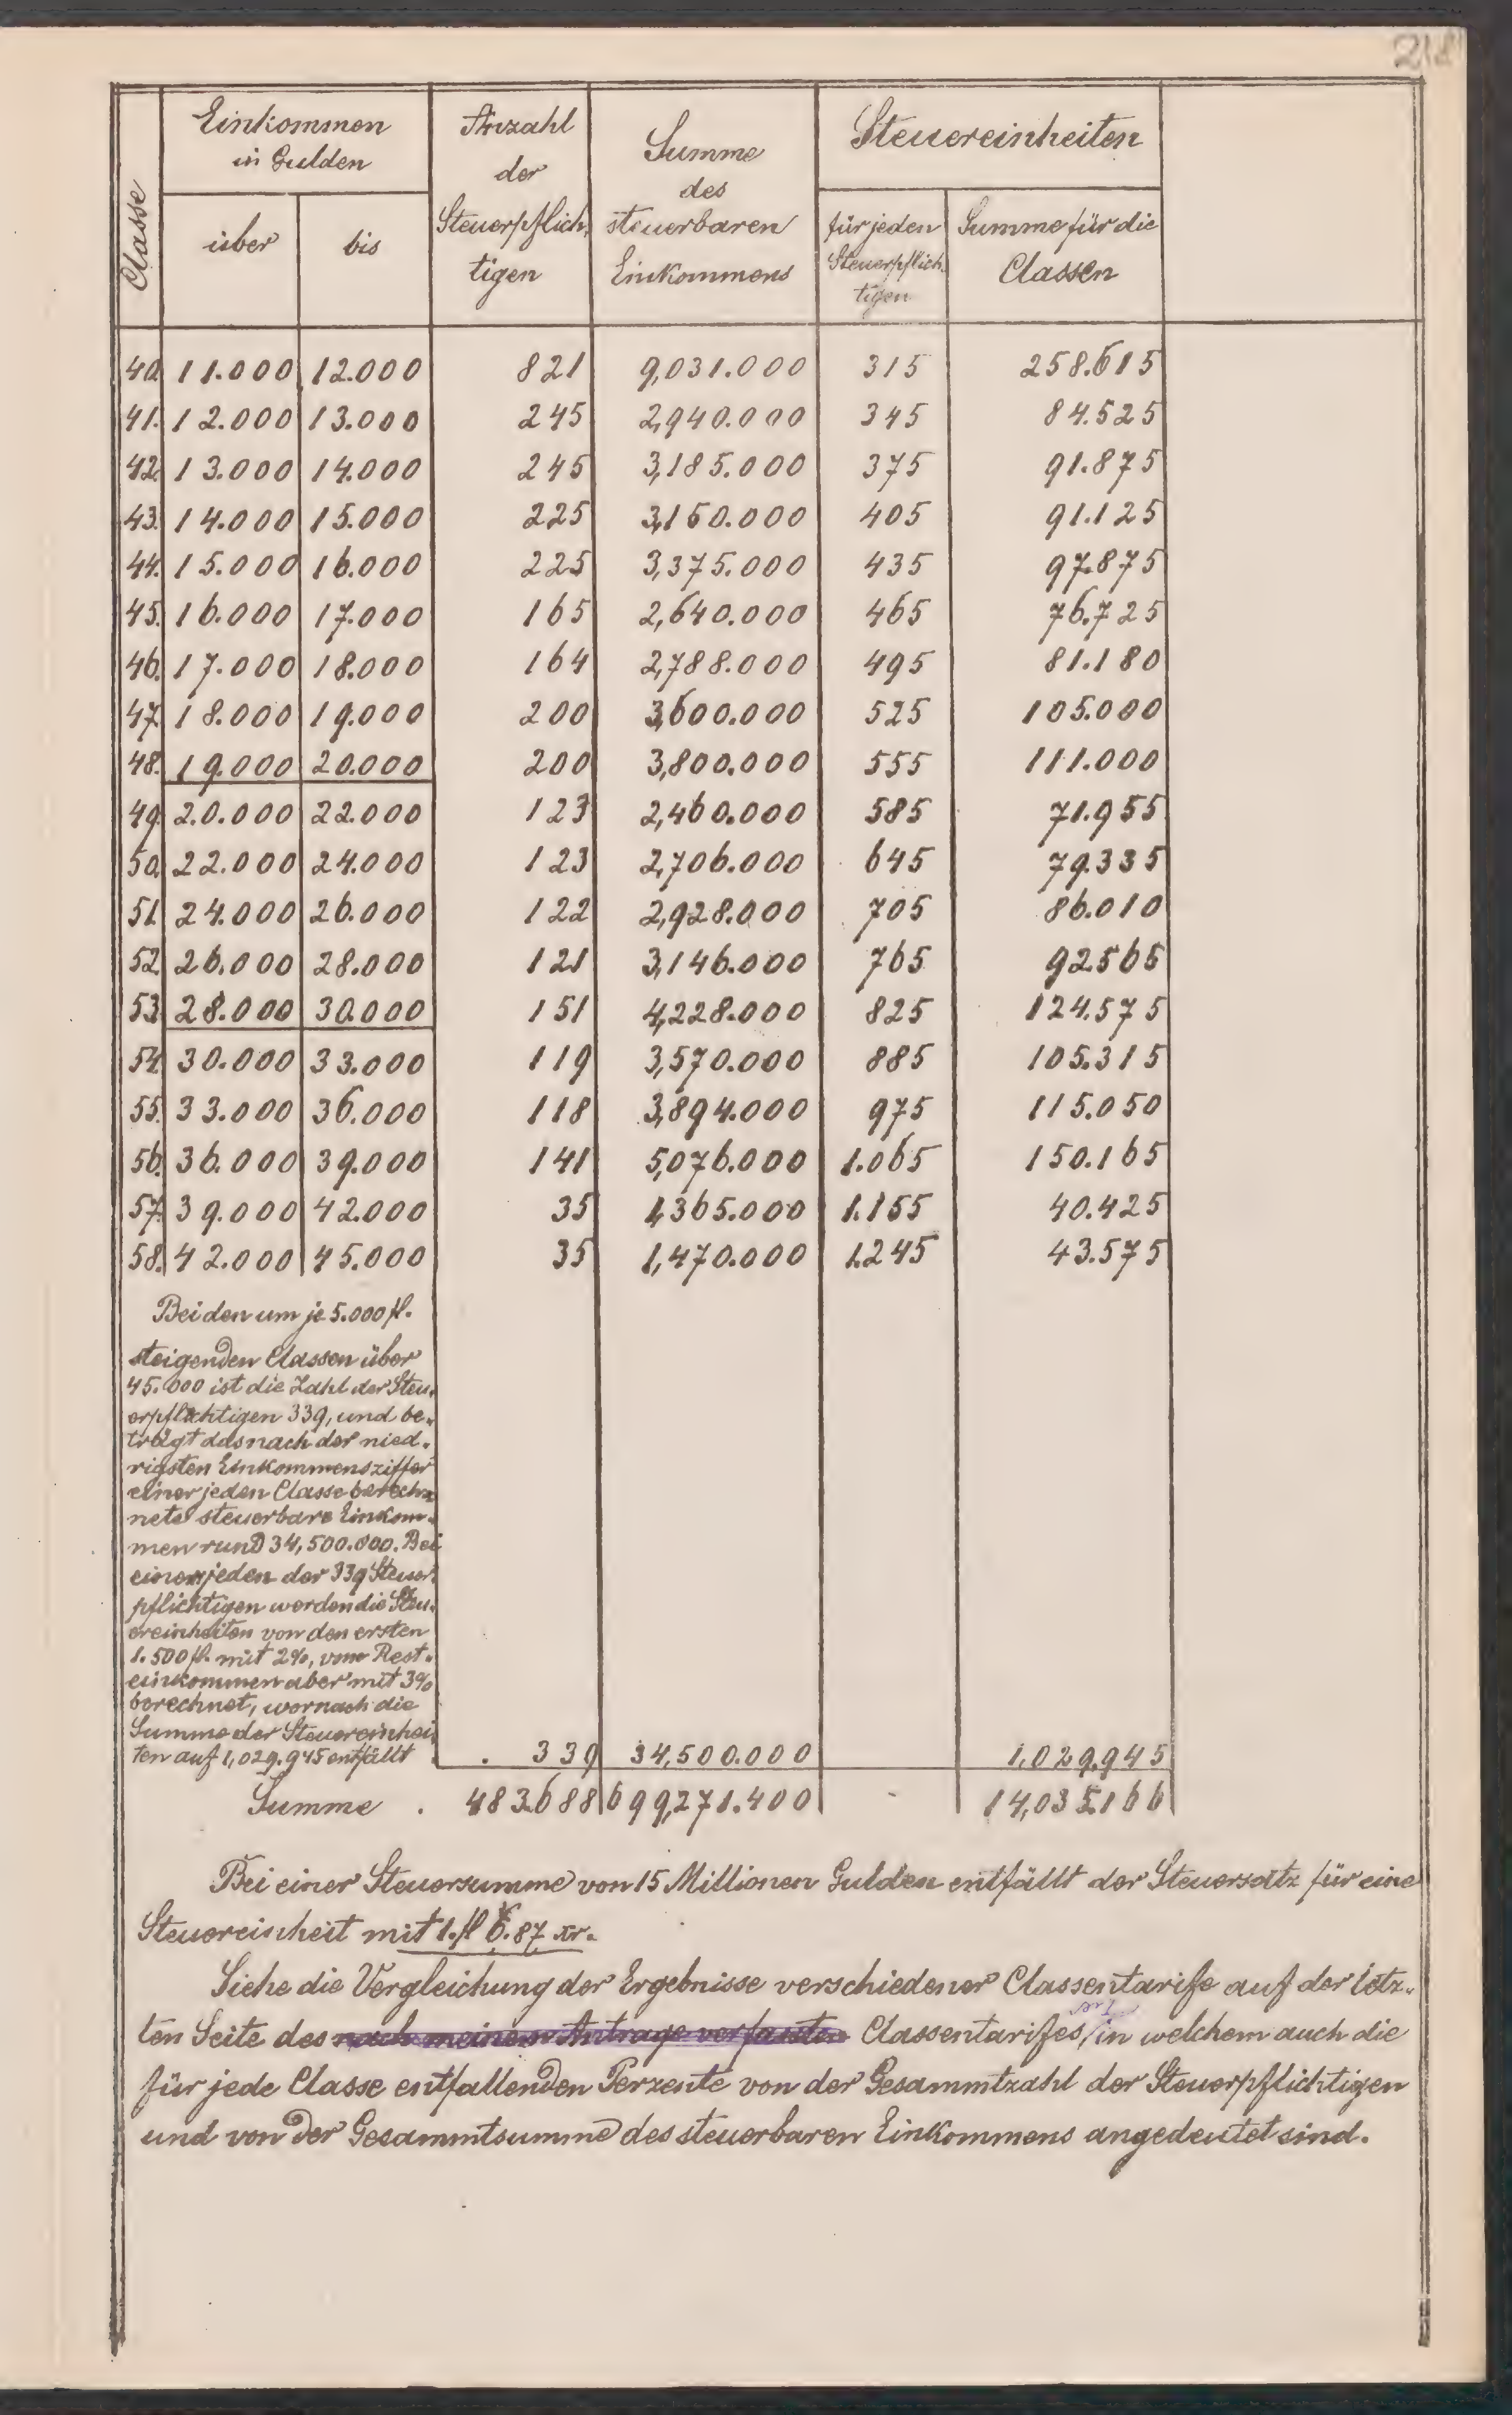 218
Classe
Einkommen
in Gulden
über
bis
Anzahl
der
Steuerpflich-
tigen
Summe
des
steuerbaren
Einkommens
Steuereinheiten
für jeden
Steuerpflich-
tigen
Summe für die
Classen
40. 11.000 12.000 821 9,031.000 315 258.615
41. 12.000 13.000 245 2,940.000 345 84.525
42. 13.000 14.000 245 3,185.000 375 91.875
43. 14.000 15.000 225 3,150.000 405 91.125
44. 15.000 16.000 225 3,375.000 435 97.875
45. 16.000 17.000 165 2,640.000 465 76.725
46. 17.000 18.000 164 2,788.000 495 81.180
47. 18.000 19.000 200 3,600.000 525 105.000
48. 19.000 20.000 200 3,800.000 555 111.000
49. 20.000 22.000 123 2,460.000 585 71.955
50. 22.000 24.000 123 2,706.000 645 79.335
51. 24.000 26.000 122 2,928.000 705 86.010
52. 26.000 28.000 121 3,146.000 765 92.565
53. 28.000 30.000 151 4,228.000 825 124.575
54. 30.000 33.000 119 3,570.000 885 105.315
55. 33.000 36.000 118 3,894.000 975 115.050
56. 36.000 39.000 141 5,076.000 1.065 150.165
57. 39.000 42.000 35 1,365.000 1.155 40.425
58. 42.000 45.000 35 1,470.000 1.245 43.575
Bei den um je 5.000 fl.
steigenden Classen über
45.000 ist die Zahl der Steu-
erpflichtigen 339, und be-
trägt das nach der nied-
rigsten Einkommensziffer
einer jeden Classe berech-
nete steuerbare Einkom-
men rund 34,500.000. Bei
einem jeden der 339 Steuer-
pflichtigen werden die Steu-
ereinheiten von den ersten
1.500 fl. mit 2%, vom Rest-
einkommen aber mit 3%
berechnet, wornach die
Summe der Steuereinhei-
ten auf 1,029.945 entfällt . 339 34,500.000 1,029.945
Summe . 483.688 699,271.400 - 14,035.166
Bei einer Steuersumme von 15 Millionen Gulden entfällt der Steuersatz für eine
Steuereinheit mit 1. fl 6.87 xr.
Siehe die Vergleichung der Ergebnisse verschiedener Classentarife auf der letz-
ten Seite des nach meinem Antrage verfassten Classentarifes, in welchem auch die
für jede Classe entfallenden Perzente von der Gesammtzahl der Steuerpflichtigen
und von der Gesammtsumme des steuerbaren Einkommens angedeutet sind.